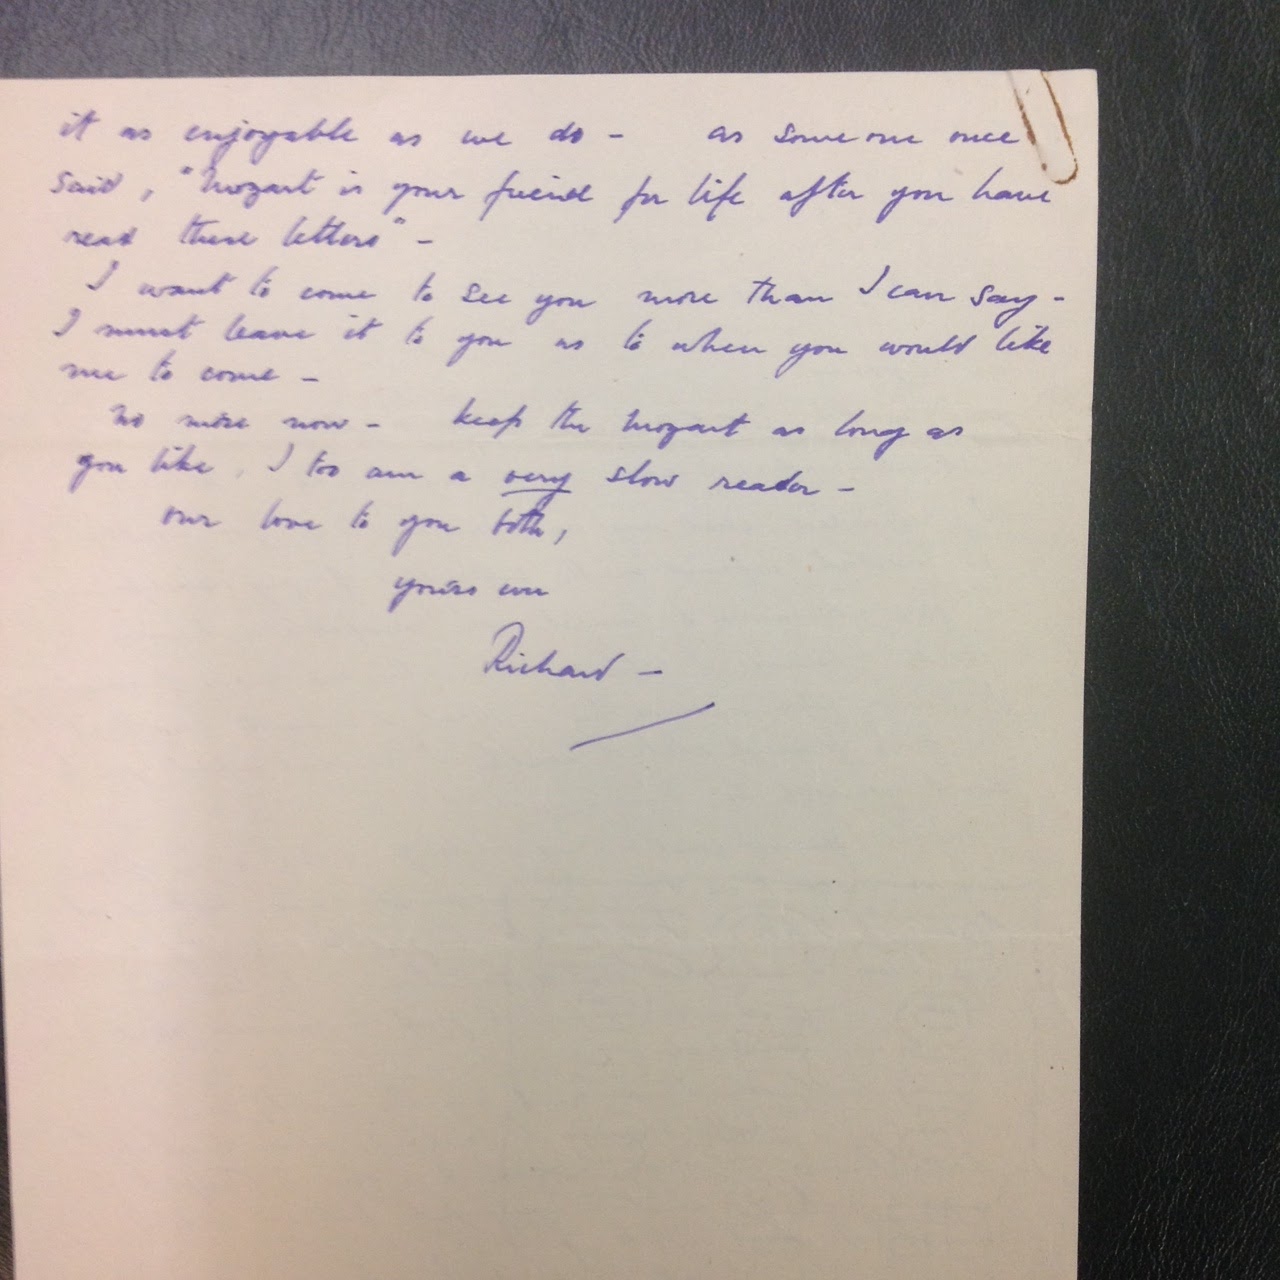 it as enjoyable as we do - as someone once
said, "Mozart is your friend for life after you have
read these letters" -
I want to come to see you more than I can say -
I must leave it to you as to when you would like
me to come -
No more now - keep the Mozart as long as
you like. I too am a very slow reader -
our love to you both,
yours ever
Richard -